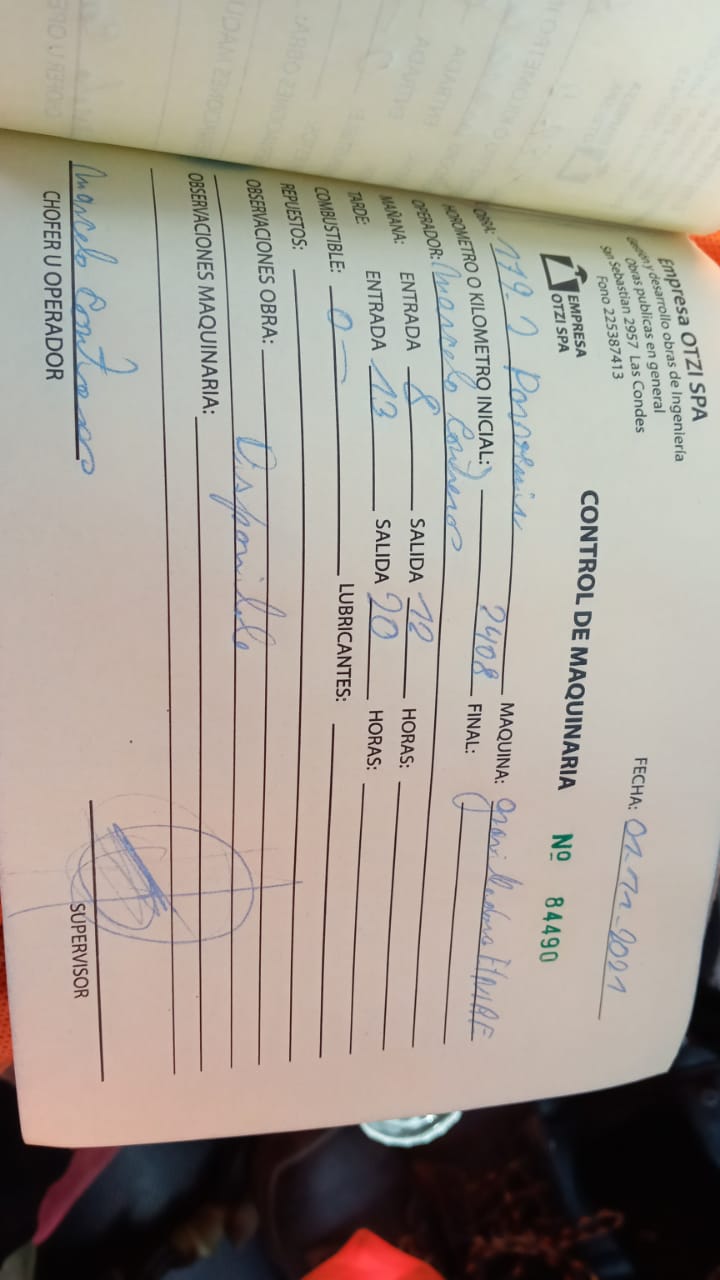 Empresa OTZI SPA
Gestion y desarrollo obras de Ingeniería
Obras publicas en general
San Sebastian 2957 Las Condes
Fono 225387413
FECHA: 01-11-2021
EMPRESA
OTZI SPA
CONTROL DE MAQUINARIA Nº 84490
OBRA: 179-2 MAQUINA:
HOROMETRO O KILOMETRO INICIAL: 2408 FINAL:
OPERADOR: Marcelo Contreras
MAÑANA: ENTRADA 8 SALIDA 12 HORAS:
TARDE: ENTRADA 13 SALIDA 20 HORAS:
COMBUSTIBLE: 0 — LUBRICANTES:
REPUESTOS:
OBSERVACIONES OBRA: Disponible
OBSERVACIONES MAQUINARIA:
Marcelo Contreras
CHOFER U OPERADOR SUPERVISOR